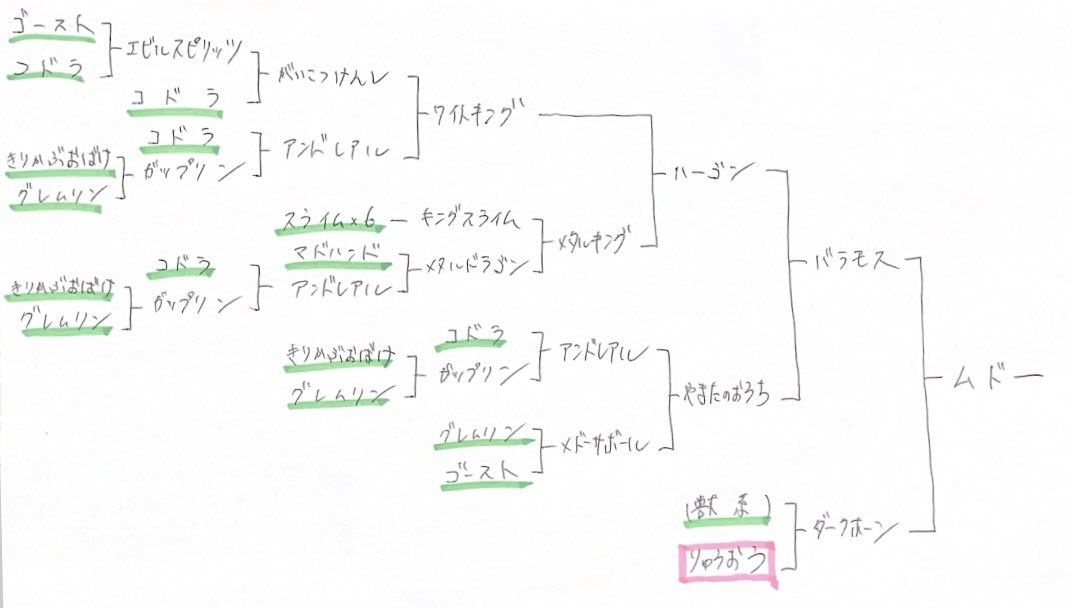 ゴースト
コドラ
エビルスピリッツ
コドラ
がいこつけんし
コドラ
きりかぶおばけ
グレムリン
ガップリン
アンドレアル
ワイトキング
スライム×6
キングスライム
マドハンド
コドラ
きりかぶおばけ
グレムリン
ガップリン
アンドレアル
メタルドラゴン
メタルキング
ハーゴン
きりかぶおばけ
グレムリン
コドラ
ガップリン
アンドレアル
グレムリン
ゴースト
メドーサボール
やまたのおろち
バラモス
(獣系)
りゅうおう
ダークホーン
ムドー